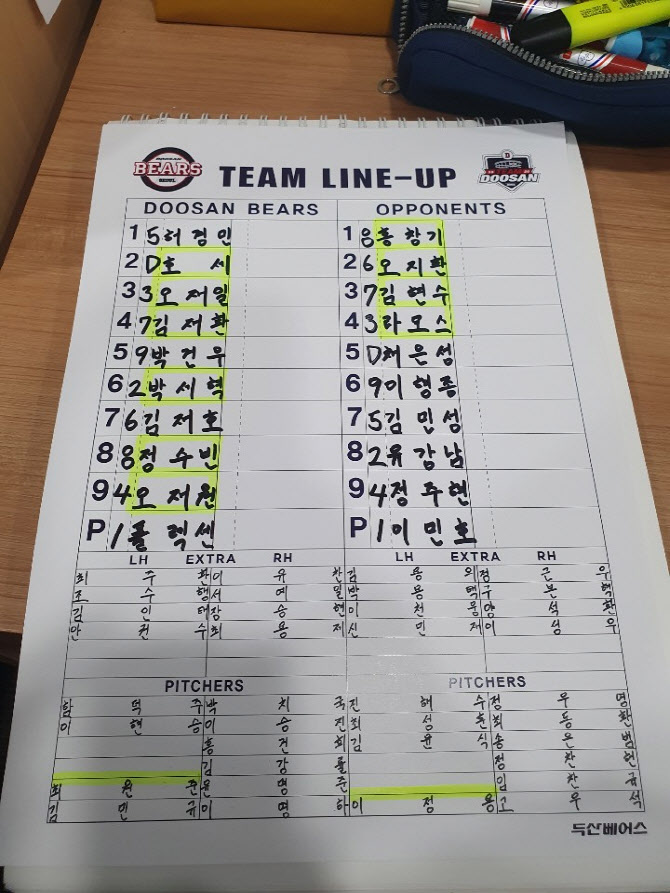 DOOSAN
BEARS
SEOUL
TEAM LINE-UP
TEAM
DOOSAN
DOOSAN BEARS OPPONENTS
1 5 허경민 1 8 홍창기
2 D 호세 2 6 오지환
3 3 오재일 3 7 김현수
4 7 김재환 4 3 라모스
5 9 박건우 5 D 채은성
6 2 박세혁 6 9 이형종
7 6 김재호 7 5 김민성
8 8 정수빈 8 2 유강남
9 4 오재원 9 4 정주현
P 1 플렉센 P 1 이민호
LH EXTRA RH LH EXTRA RH
최주환 이유찬 김용의 정근우
조수행 서예일 박용택 구본혁
김인태 장승현 이천웅 양석환
안권수 최용제 신민재 이성우
PITCHERS PITCHERS
함덕주 박치국 진해수 정우영
이현승 이승진 최성훈 최동환
홍건희 김윤식 송은범
김강률 정찬헌
최원준 윤명준 임찬규
김민규 이영하 이정용 고우석
두산베어스